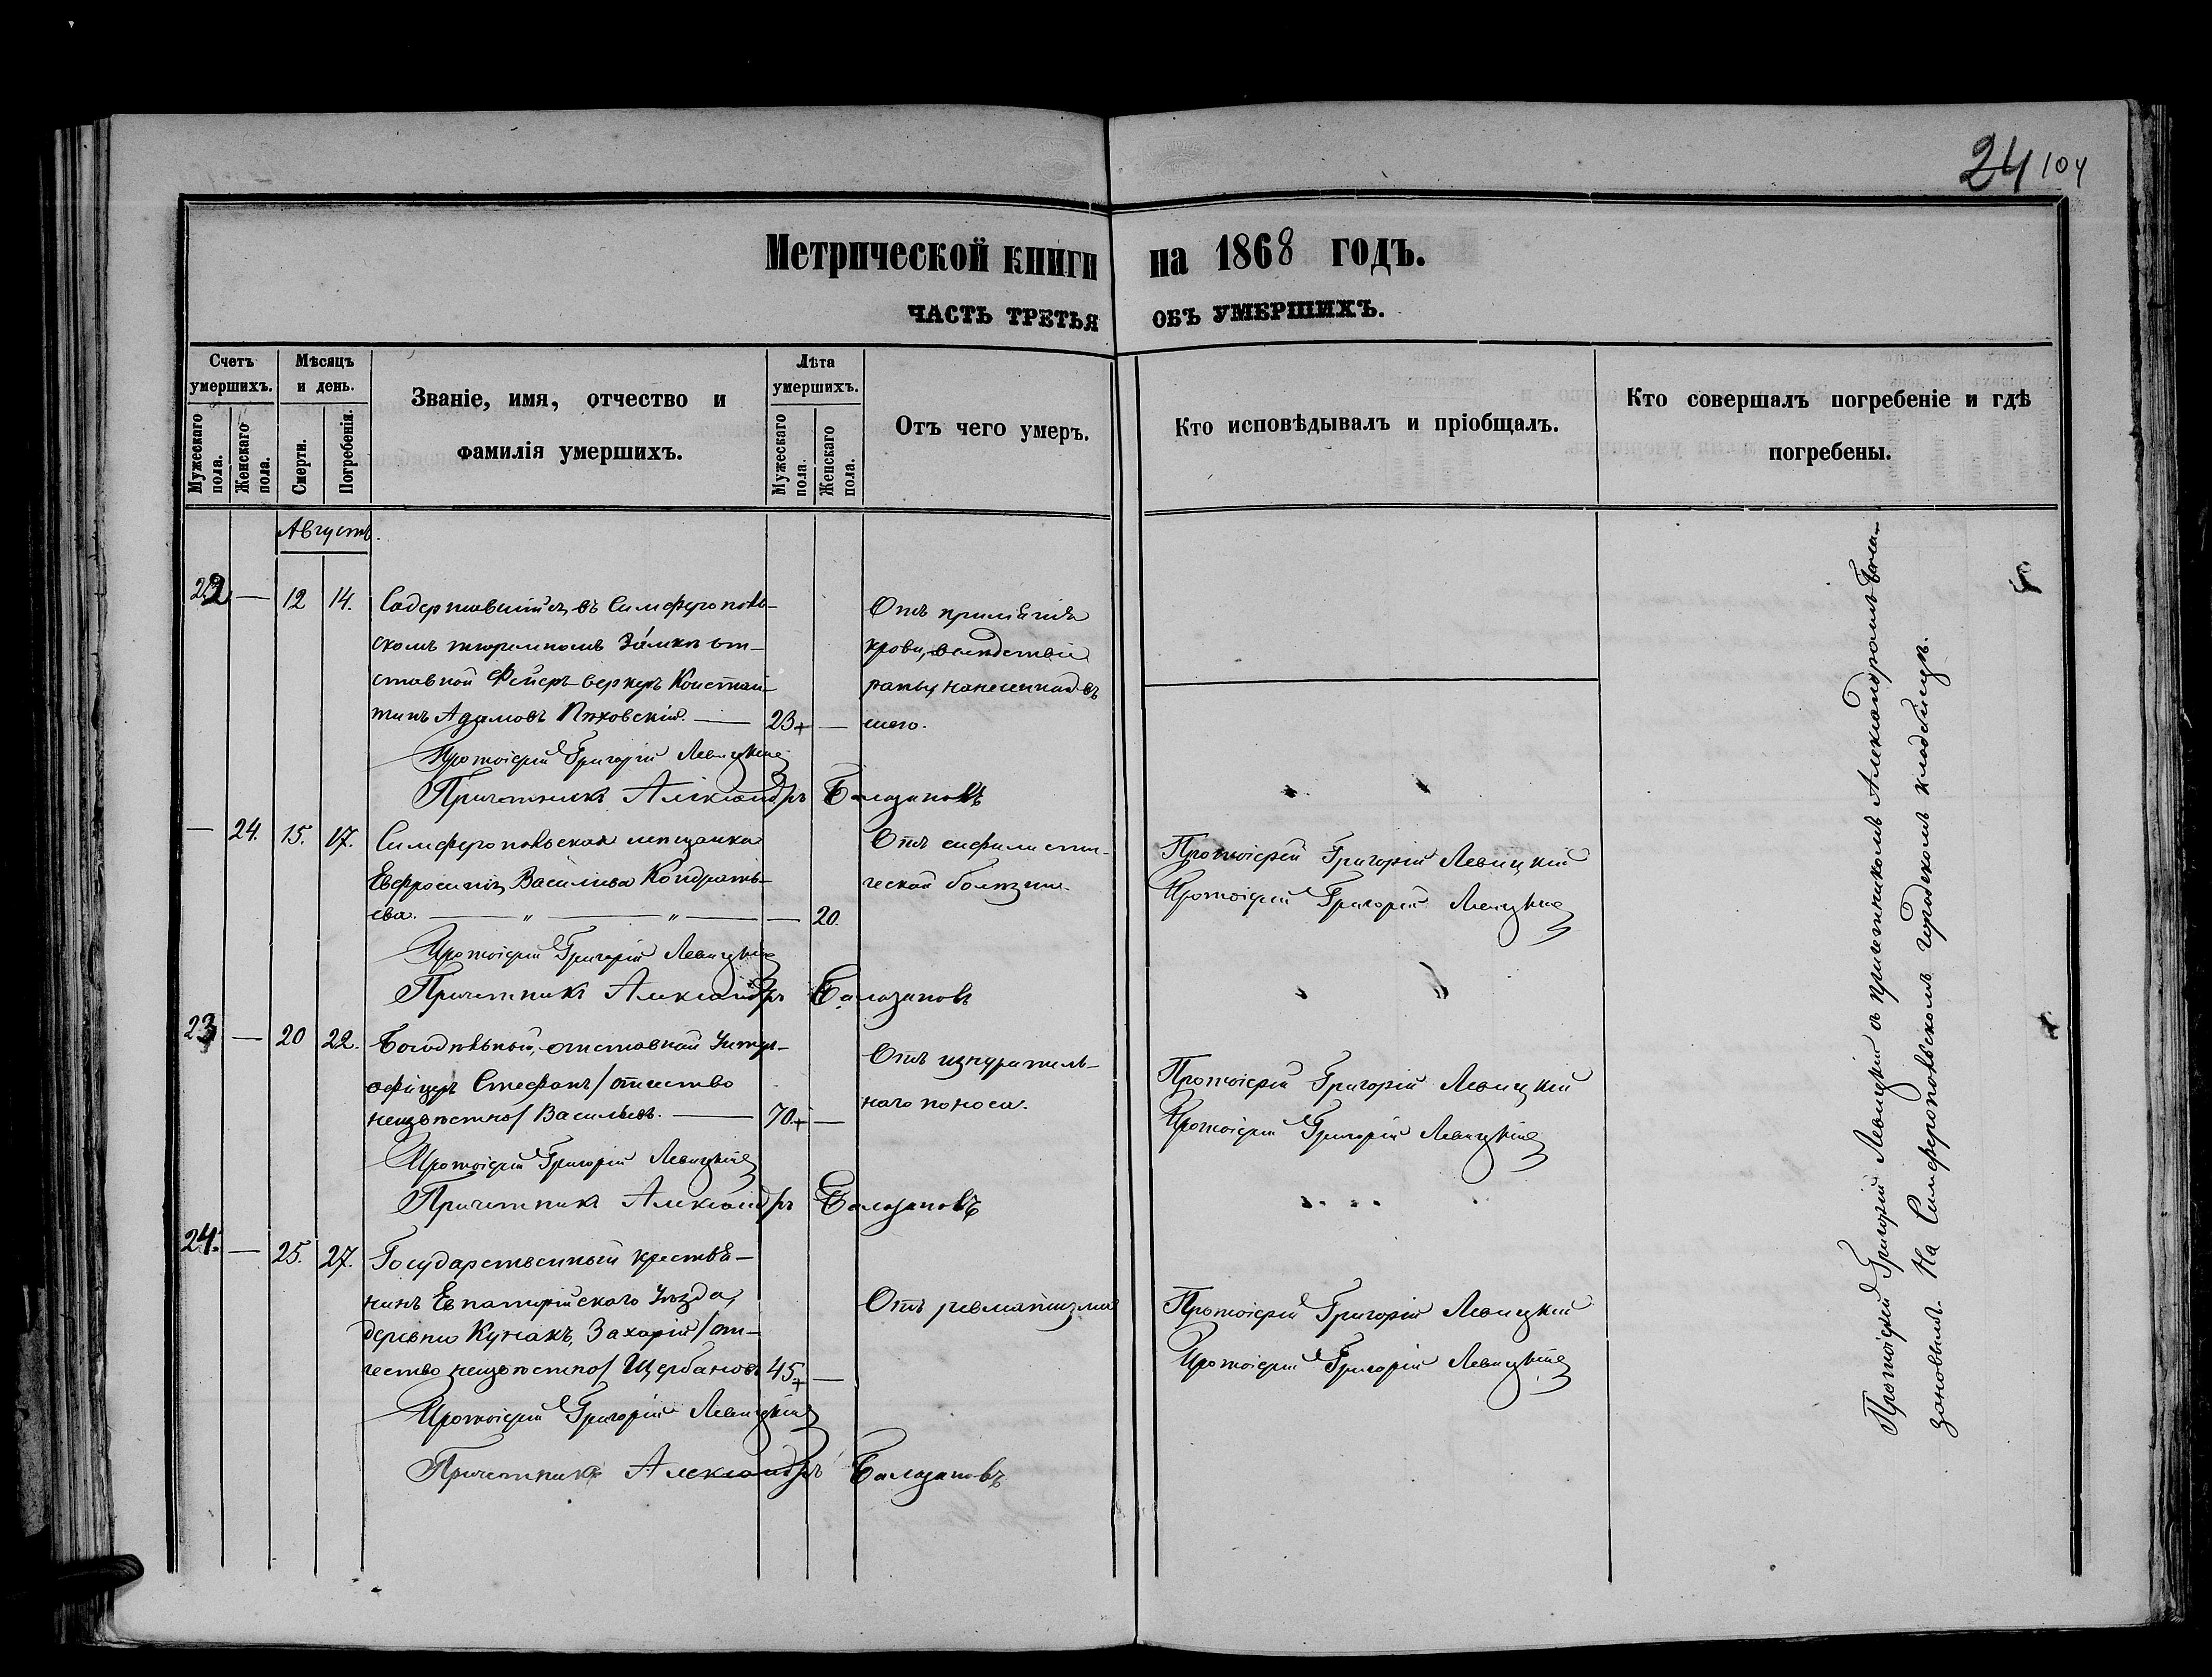 24 104
Метрической книги на 1868 годъ.
ЧАСТЬ ТРЕТЬЯ ОБЪ УМЕРШИХЪ.
Счетъ умершихъ.
Мужескаго пола.
Женскаго пола.
Мѣсяцъ и день.
Смерти.
Погребенія.
Званіе, имя, отчество и
фамилія умершихъ.
Лѣта умершихъ.
Мужескаго пола.
Женскаго пола.
Отъ чего умеръ.
Кто исповѣдывалъ и пріобщалъ.
Кто совершалъ погребеніе и гдѣ
погребены.
Августъ.
22 — 12 14. Содержавшійся въ Симферополь-
скомъ тюремномъ Замкѣ от-
ставной Фейерверкеръ Констан-
тинъ Адамовъ 23 —
Отъ
крови, вслѣдствіе
раны, нанесенной въ
шею.
Протоіерей Григорій Левицкій
Причетникъ Александръ Балазановъ
— 24. 15. 17. Симферопольская мещанка
Евфросинія Васильева Кондрать-
ева. — " — " — — 20.
Отъ сифилити-
ческой болѣзни.
Протоіерей Григорій Левицкій
Протоіерей Григорій Левицкій
Протоіерей Григорій Левицкій
Причетникъ Александръ Балазановъ
23 — 20 22. Богодѣльный, отставной Унтеръ-
офицеръ Стефанъ /отчество
неизвѣстно/ Васильевъ. — 70 —
Отъ изнуритель-
наго поноса.
Протоіерей Григорій Левицкій
Протоіерей Григорій Левицкій
Протоіерей Григорій Левицкій
Причетникъ Александръ Балазановъ
24. — 25. 27. Государственный крестья-
нинъ Евпаторійскаго Уѣзда,
деревни Захарій /от-
чество неизвѣстно/ Щербановъ 45 —
Отъ ревматизма
Протоіерей Григорій Левицкій
Протоіерей Григорій Левицкій
Протоіерей Григорій Левицкій
Причетникъ Александръ Балазановъ
Протоіерей Григорій Левицкій съ причетникомъ Александромъ Бала-
зановымъ. На Симферопольскомъ городскомъ кладбищѣ.